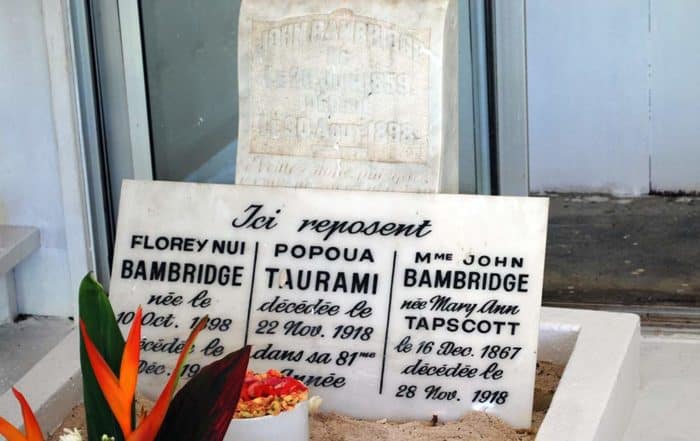 JOHN BAMBRIDGE
LE
1859.
LE 30 AOUT 1898.
Ici reposent
FLOREY NUI
BAMBRIDGE
née le
Oct. 1898
le
Déc.
POPOUA
TAURAMI
décédée le
22 Nov. 1918
dans sa 81me
Année
Mme JOHN
BAMBRIDGE
née Mary Ann
TAPSCOTT
le 16 Dec. 1867
décédée le
28 Nov. 1918